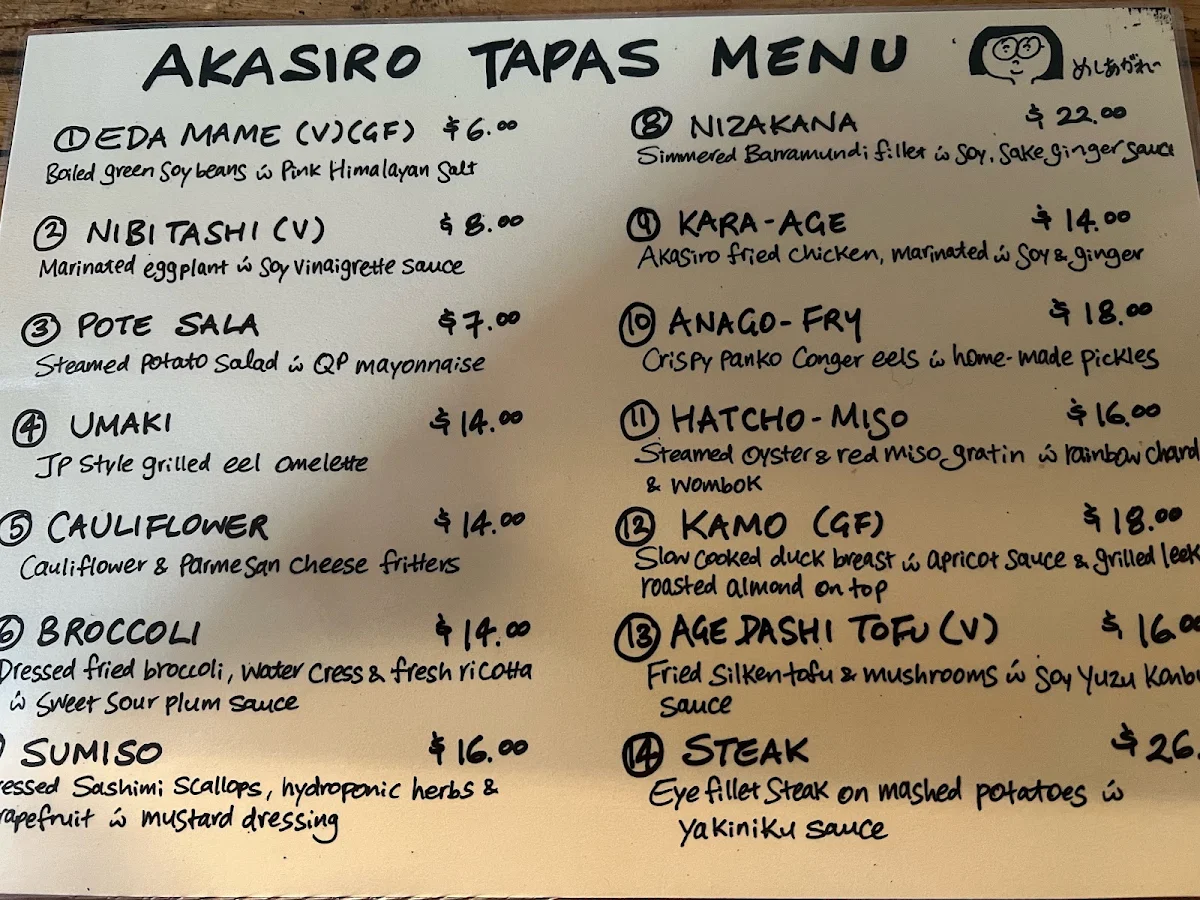 AKASIRO TAPAS MENU
めしあがれ〜
① EDA MAME (V)(GF) $6.00
Boiled green Soy beans ẃ Pink Himalayan Salt
② NIBITASHI (V) $8.00
Marinated eggplant ẃ Soy Vinaigrette Sauce
③ POTE SALA $7.00
Steamed Potato Salad ẃ QP mayonnaise
④ UMAKI $14.00
JP Style grilled eel omelette
⑤ CAULIFLOWER $14.00
Cauliflower & Parmesan Cheese fritters
⑥ BROCCOLI $14.00
Dressed fried broccoli, Water Cress & fresh ricotta
ẃ Sweet Sour plum Sauce
SUMISO $16.00
essed Sashimi Scallops, hydroponic herbs &
rapefruit ẃ mustard dressing
⑧ NIZAKANA $22.00
Simmered Barramundi fillet ẃ Soy, Sake, ginger Sauce
⑨ KARA-AGE $14.00
Akasiro fried Chicken, marinated ẃ Soy & ginger
⑩ ANAGO-FRY $18.00
Crispy Panko Conger eels ẃ home-made pickles
⑪ HATCHO-MISO $16.00
Steamed Oyster & red miso gratin ẃ rainbow Chard
& Wombok
⑫ KAMO (GF) $18.00
Slow cooked duck breast ẃ apricot Sauce & grilled leek
roasted almond on top
⑬ AGE DASHI TOFU (V) $16.00
Fried Silken tofu & mushrooms ẃ Soy Yuzu Konbu
Sauce
⑭ STEAK $26.
Eye fillet Steak on mashed potatoes ẃ
Yakiniku Sauce